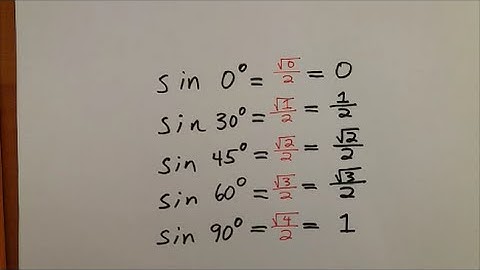 sin 0° = √0/2 = 0
sin 30° = √1/2 = 1/2
sin 45° = √2/2 = √2/2
sin 60° = √3/2 = √3/2
sin 90° = √4/2 = 1